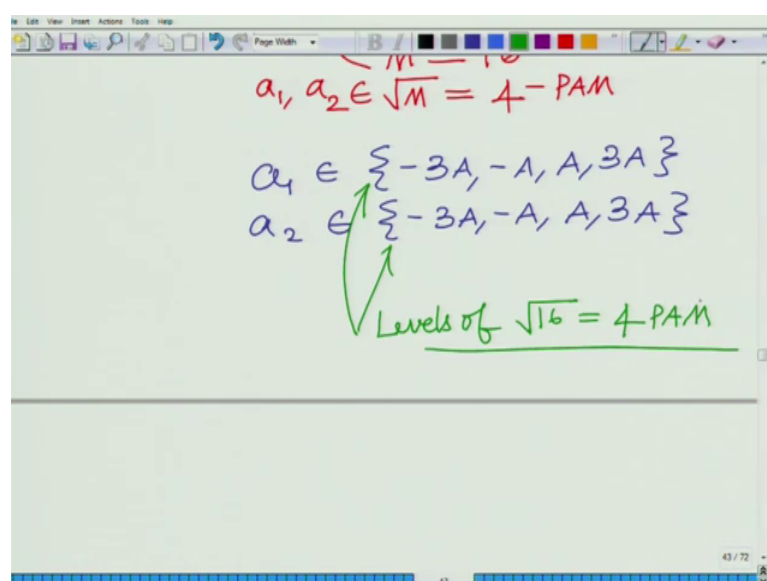 Edit View Insert Actions Tools Help
Page Width B I
M = 16
a₁, a₂ ∈ √M = 4-PAM
a₁ ∈ {-3A, -A, A, 3A}
a₂ ∈ {-3A, -A, A, 3A}
Levels of √16 = 4 PAM
43 / 72